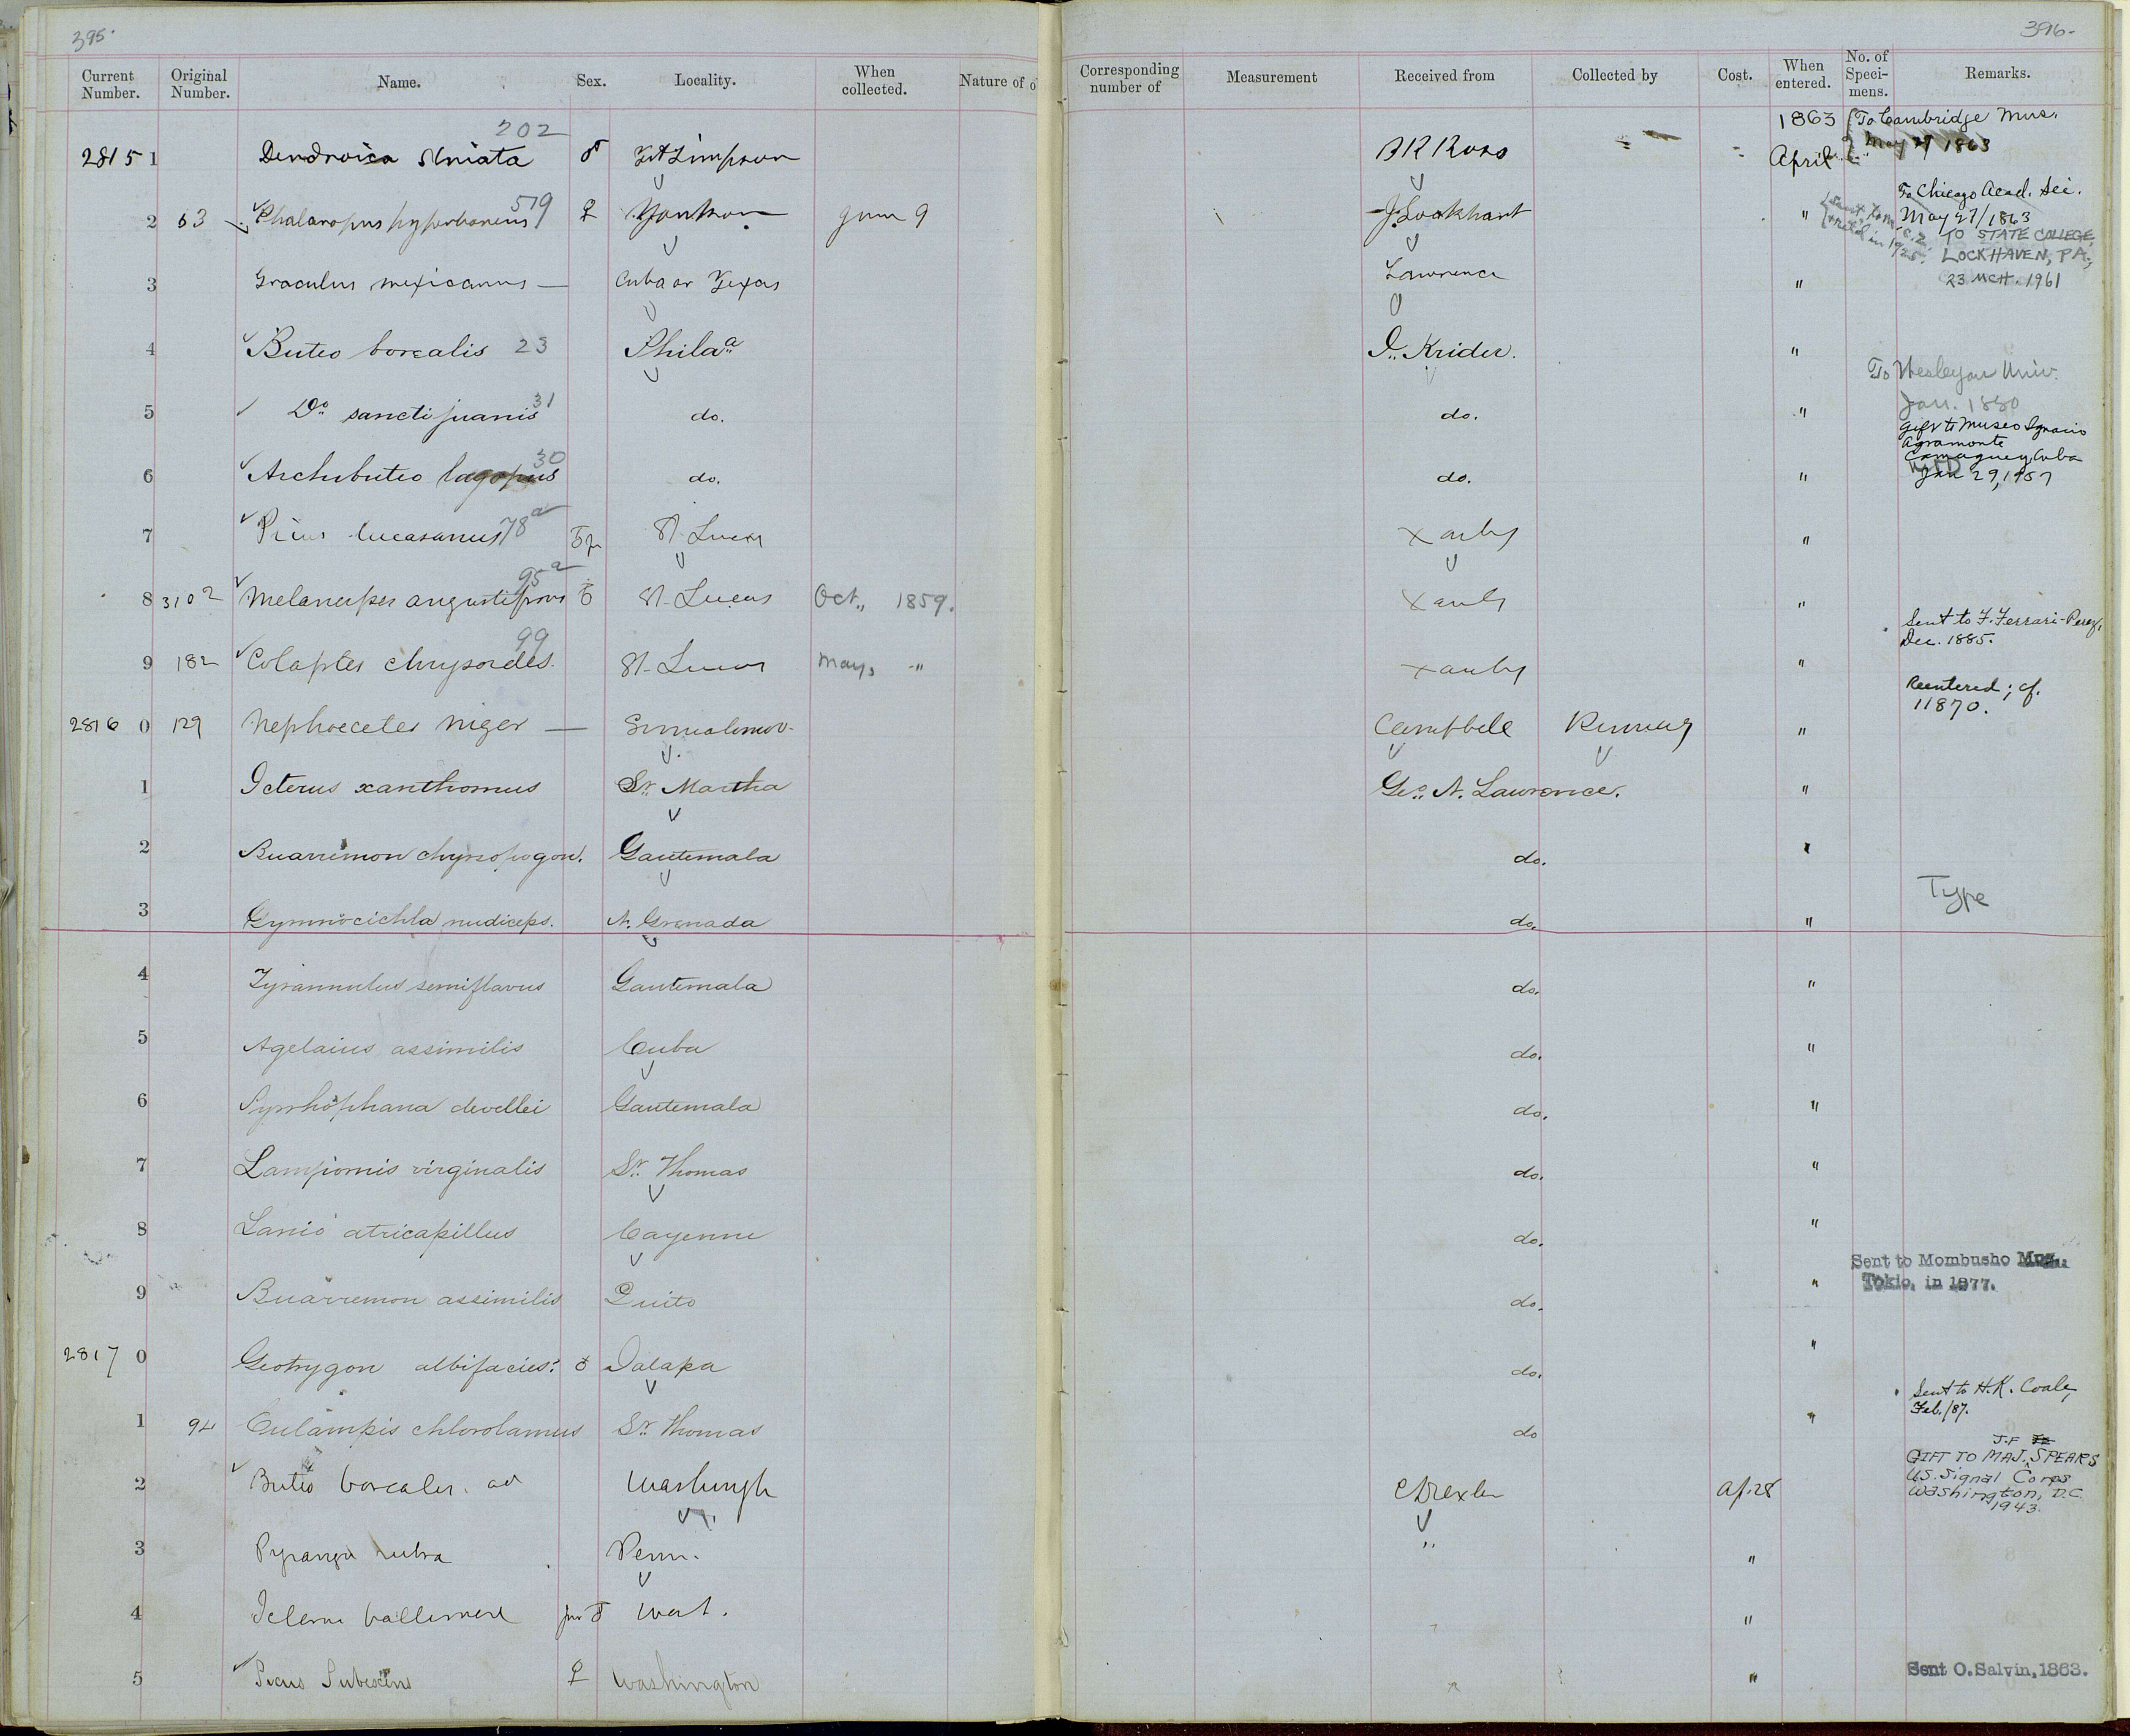 395.
396-
Current Number. Original Number. Name. Sex. Locality. When collected. Nature of o
Corresponding number of Measurement Received from Collected by Cost. When entered. No. of Specimens. Remarks.
202
2815 1 Dendroica Striata ♂ Ft Simpson B R Ross 1863 April To Cambridge Mus. May 27 1863
2 63 Phalaropus hyperboreus 519 ♀ Youkon June 9 J. Lockhart " To Chicago Acad. Sci. May 27/1863
Sent to M.C.Z. & ret'd in 1925.
3 Graculus mexicanus — Cuba or Texas Lawrence " TO STATE COLLEGE, LOCKHAVEN, PA., 23 MCH. 1961
4 Buteo borealis 23 Phila a J. Krider. "
5 Do sancti juanis 31 do. do. " To Wesleyan Univ. Jan. 1880
6 Archibuteo lagopus 30 do. do. " Gift to Museo Ignacio Agramonte Camaguey, Cuba Jan 29, 1957
7 Picus lucasanus 78a St. Lucas Xanthus "
8 3102 Melanerpes angustifrons 95a St. Lucas Oct., 1859. Xantus "
9 182 Colaptes chrysoides. 99 St. Lucas May, " Xanthus " Sent to F. Ferrari-Perez, Dec. 1885.
2816 0 129 Nephoecetes niger — Simiahmoo. Campbell Kennerly " Reentered; cf. 11870.
1 Icterus xanthomus St. Martha Geo. N. Lawrence. "
2 Buarremon chrysopogon. Gautemala do. "
3 Gymnocichla nudiceps. N. Grenada do. " Type
4 Tyrannulus semiflavus Gautemala do. "
5 Agelaius assimilis Cuba do. "
6 Pyrrhophana devellei Gautemala do. "
7 Lampornis virginalis St. Thomas do. "
8 Lanio atricapillus Cayenne do. "
9 Buarremon assimilis Quito do. " Sent to Mombusho Mus., Tokio, in 1877.
2817 0 Geotrygon albifacies. ♂ Jalapa do. "
1 94 Eulampis chlorolamus St. Thomas do " Sent to H. K. Coale, Feb./87.
2 Buteo borealis. ad Washingt C Drexler Ap. 28 GIFT TO MAJ. J.F SPEARS U.S. Signal Corps Washington, D.C. 1943.
3 Pyranga rubra Penn. " "
4 Icterus baltimore juv ♂ Wash. "
5 Picus Pubescens ♀ Washington " Sent O. Salvin, 1863.